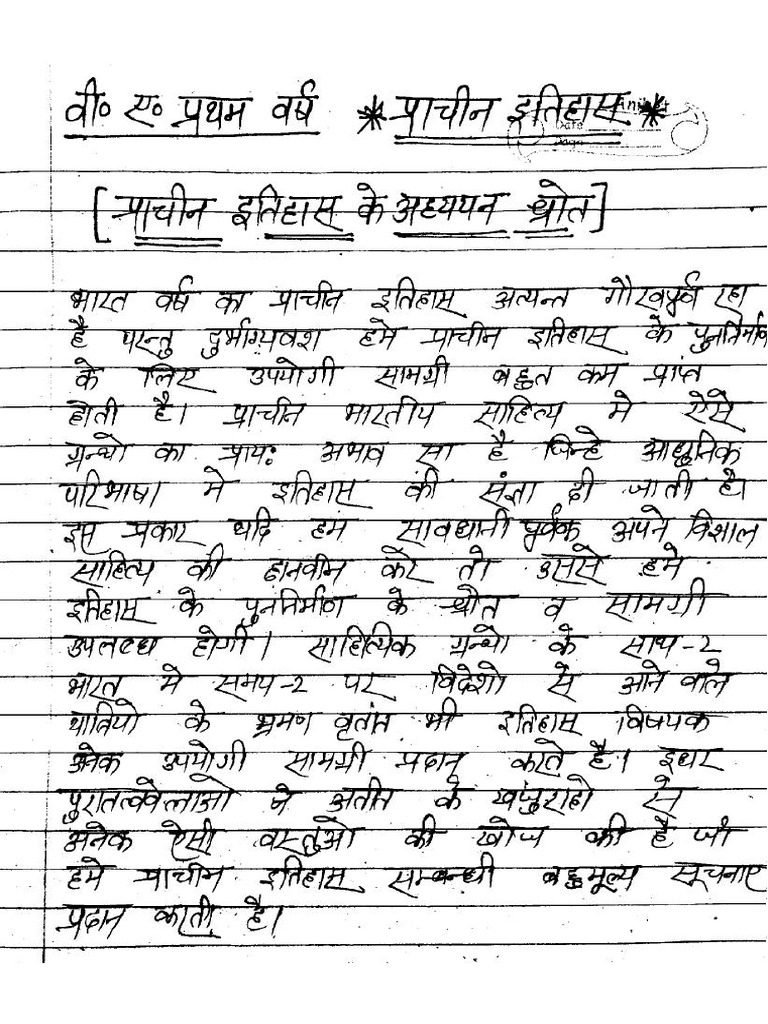 वी० ए० प्रथम वर्ष * प्राचीन इतिहास *
Date
Page
[ प्राचीन इतिहास के अध्ययन श्रोत ]
भारत वर्ष का प्राचीन इतिहास अत्यन्त गौरवपूर्व रहा
है परन्तु दुर्भाग्यवश हमे प्राचीन इतिहास के पुनर्निर्माण
के लिए उपयोगी सामग्री बहुत कम प्राप्त
होती है। प्राचीन भारतीय साहित्य मे ऐसे
ग्रन्थो का प्राय: अभाव सा है जिन्हे आधुनिक
परिभाषा मे इतिहास की संज्ञा दी जाती है।
इस प्रकार यदि हम सावधानी पूर्वक अपने विशाल
साहित्य की छानवीन करे तो उससे हमे
इतिहास के पुनर्निर्माण के श्रोत व सामग्री
उपलब्ध होगी। साहित्यिक ग्रन्थो के साथ-२
भारत मे समय-२ पर विदेशो से आने वाले
यात्रियो के भ्रमण वृतांत भी इतिहास विषयक
अनेक उपयोगी सामग्री प्रदान करते है। इधर
पुरातत्ववेत्ताओ ने अतीत के खण्डहरो से
अनेक ऐसी वस्तुओ की खोज की है जो
हमे प्राचीन इतिहास सम्बन्धी बहुमूल्य सूचनाए
प्रदान करती है।